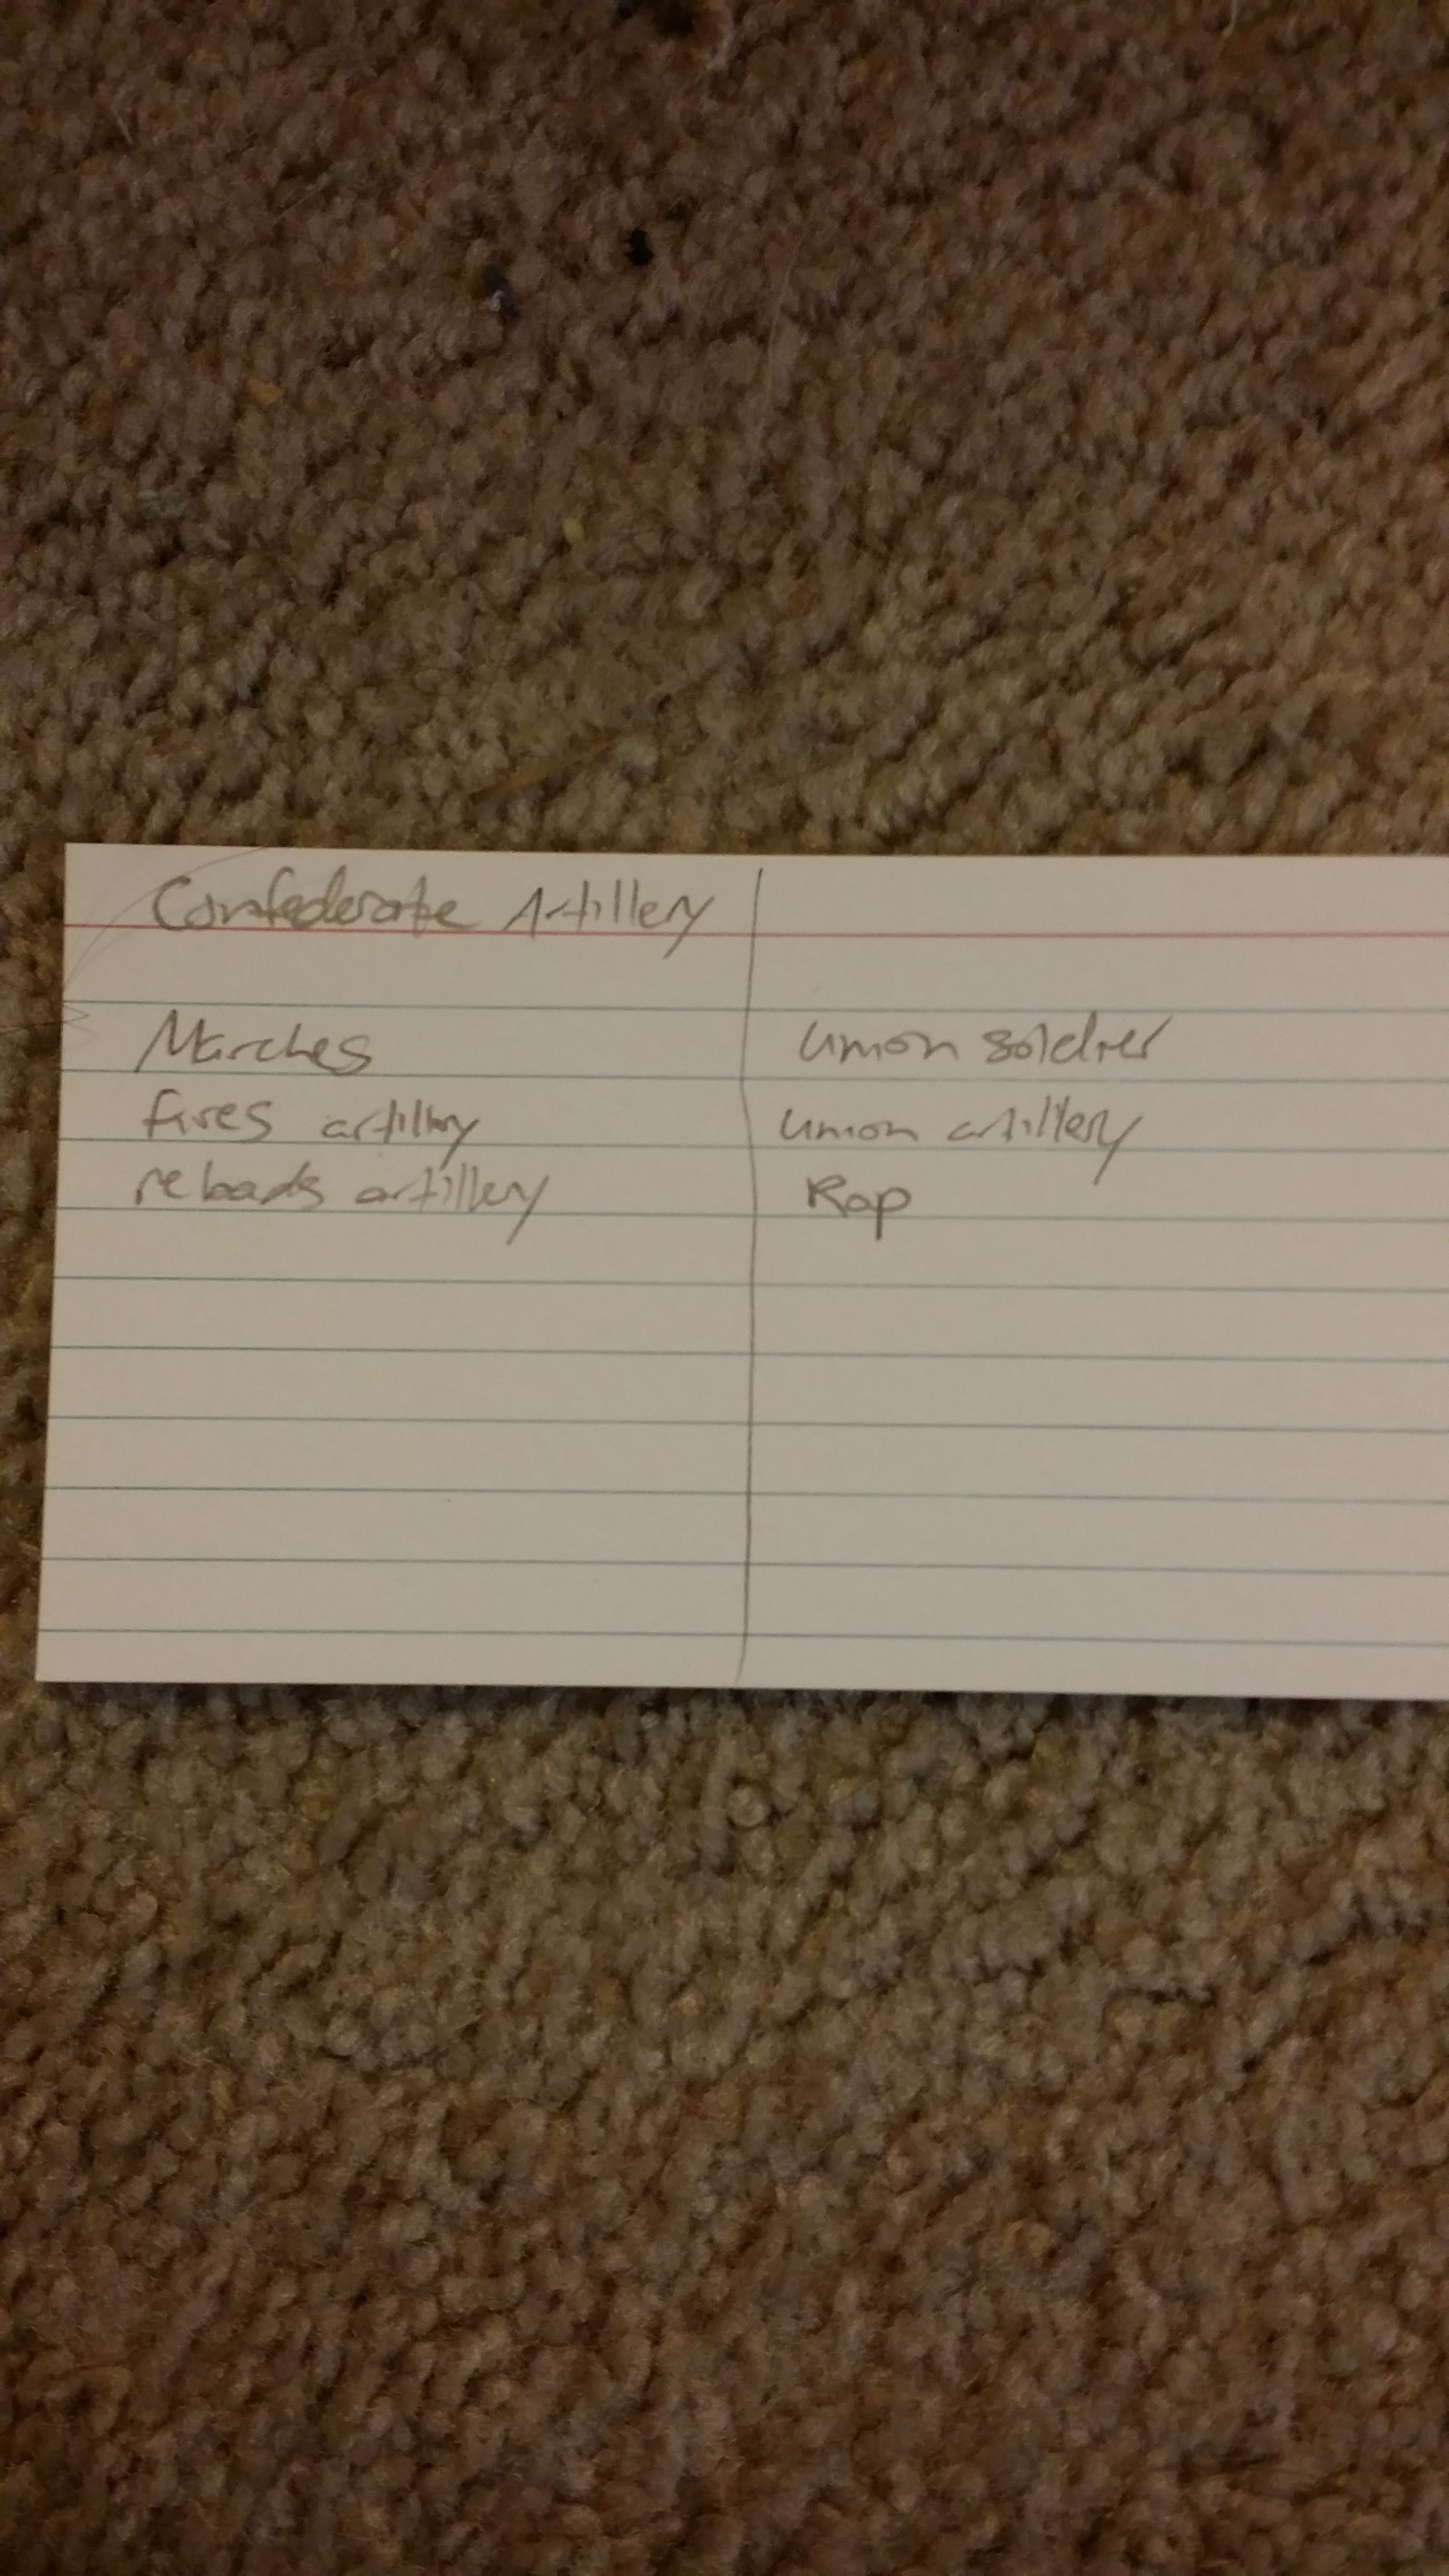 Confederate Artillery
Marches
fires artillery
reloads artillery
Union soldier
Union artillery
Rap